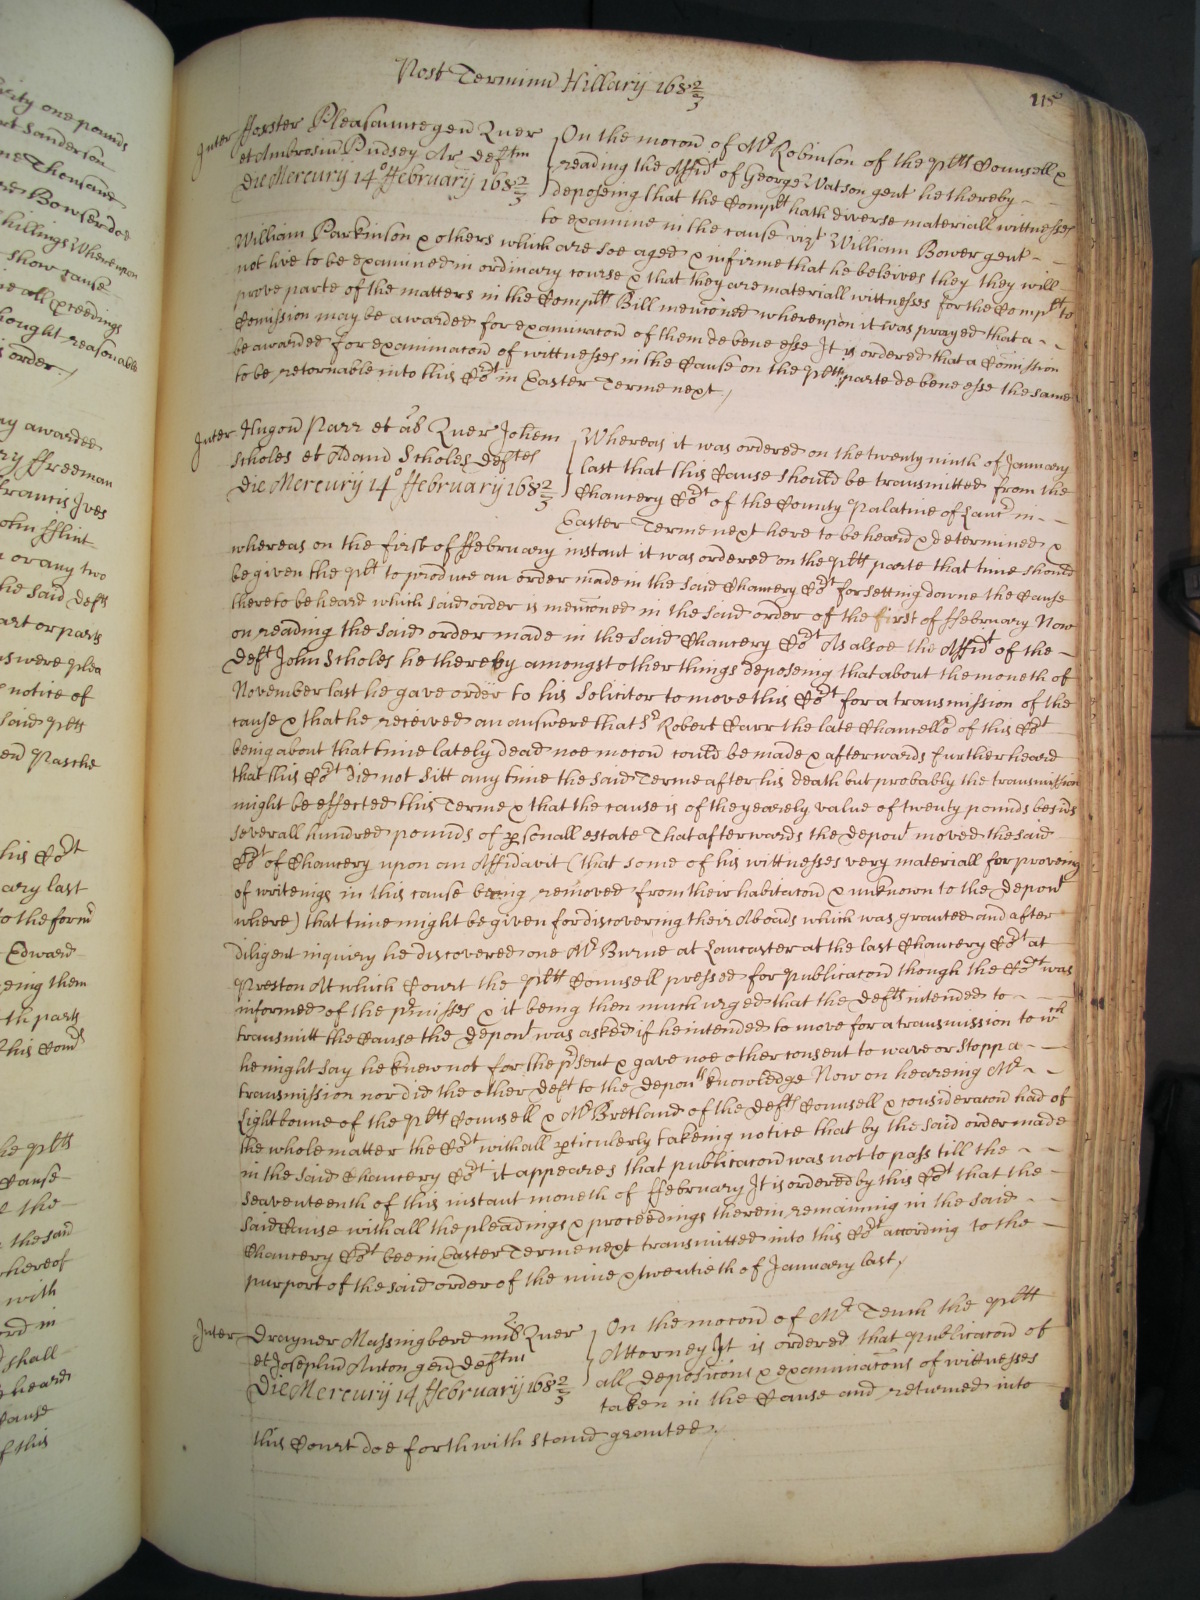 Post Terminu Hillarij 168 2/3
115
Inter ffoster Pleasaunce gen Quer
et Ambrosiu Pudsey Ar Deftm
Die Mercurij 14o ffebruarij 168 2/3
On the mocon of Mr Robinson of the plts Counsell &
reading the Affidt of George Watson gent he thereby
deposeing that the Complt hath diverse materiall wittnesses
to examine in the cause vizt William Bower gent
William Parkinson & others which are soe aged & infirme that he beleives they they will
not live to be examined in ordinary course & that they are materiall wittnesses for the Complt to
prove parte of the matters in the Complts Bill menconed whereupon it was prayed that a
Comission may be awarded for examinacon of them de bene esse It is ordered that a Comission
be awarded for examinacon of wittnesses in the Cause on the plts parte de bene esse the same
to be retornable into this Cort in Easter Terme next /
Inter Hugon Parr et als Quer Johem
Scholes et Adamu Scholes Deftes
Die Mercurij 14o ffebruarij 168 2/3
Whereas it was ordered on the twenty ninth of January
last that this Cause should be transmitted from the
Chancery Cort of the County Palatine of Lancr in
Easter Terme next here to be heard & determined &
whereas on the first of ffebruary instant it was ordered on the plts parte that time should
be given the plt to produce an order made in the said Chancery Cort for setting downe the Cause
there to be heard which said order is menconed in the said order of the first of ffebruary Now
on reading the said order made in the said Chancery Cort As alsoe the Affidt of the
Deft John Scholes he thereby amongst other things deposeing that about the moneth of
November last he gave order to his Solicitor to move this Cort for a transmission of the
cause & that he received an answere that Sr Robert Carr the late Chancellor of this Cort
being about that time lately dead noe mocon could be made & afterwards further heard
that this Cort did not sitt any time the said Terme after his death but probably the transmission
might be effected this Terme & that the cause is of the yearely value of twenty pounds besids
severall hundred pounds of psonall estate That afterwards the depont moved the said
Cort of Chancery upon an Affidavit (that some of his wittnesses very materiall for proveing
of writenigs in this cause being removed from their habitacon & unknown to the depont
where) that time might be given for discovering their Aboads which was granted and after
diligent inquiry he discovered one Mr Burne at Lancaster at the last Chancery Cort at
Preston At which Court the plts Counsell pressed for publicacon though the Cort was
informed of the pmisses & it being then much urged that the defts intended to
transmitt the Cause the depont was asked if he intended to move for a transmission to wch
he might say he knew not for the psent & gave noe other consent to wave or stopp a
transmission nor did the other deft to the deponts knowledge Now on heareing Mr
Lightboune of the plts Counsell & Mr Bretland of the defts Counsell & consideracon had of
the whole matter the Cort withall pticulerly takeing notice that by the said order made
in the said Chancery Cort it appeares that publicacon was not to pass till the
seaventeenth of this instant moneth of ffebruary It is ordered by this Cort that the
said Cause with all the pleadings & proceedings therein remaining in the said
Chancery Cort bee in Easter Terme next transmitted into this Cort according to the
purport of the said order of the nine & twentieth of January last /
Inter Drayner Massingberd mil Quer
et Josephu Auton gen Deftm
Die Mercurij 14 ffebruarij 168 2/3
On the mocon of Mr Tench the plts
Attorney It is ordered that publicacon of
all deposicons & examinacons of wittnesses
taken in the Cause and returned into
this Court doe forthwith stand granted /